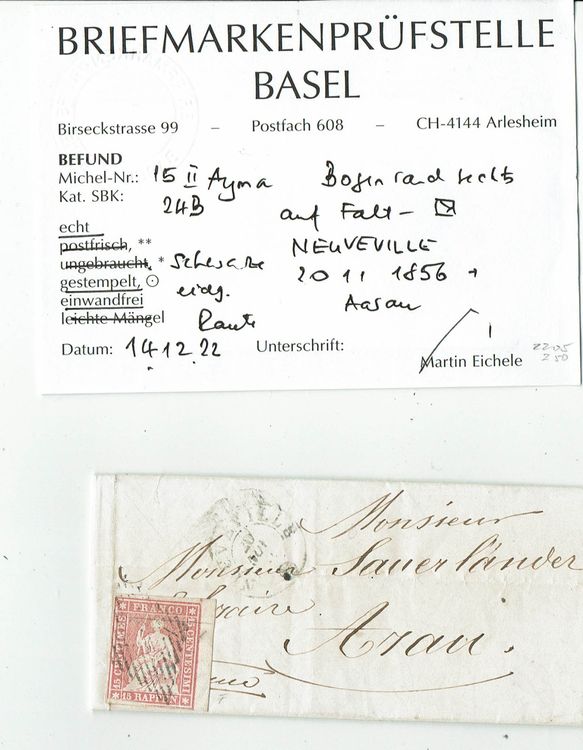 BRIEFMARKENPRÜFSTELLE
BASEL
Birseckstrasse 99 – Postfach 608 – CH-4144 Arlesheim
BEFUND
Michel-Nr.: 15 II Ayma Bogenrand rechts
Kat. SBK: 24B auf Falt- ✉
echt NEUVEVILLE
postfrisch, **
ungebraucht, * schwarze 20 11 1856 →
gestempelt, ⊙ eidg. Aarau
einwandfrei
leichte Mängel Raute
Datum: 14.12.22 Unterschrift:
Martin Eichele
2205
250
Monsieur
Monsieur Sauerländer
Libraire
Arau.
VEVILLE
FRANCO
15 CENTIMES
15 CENTESIMI
15 RAPPEN